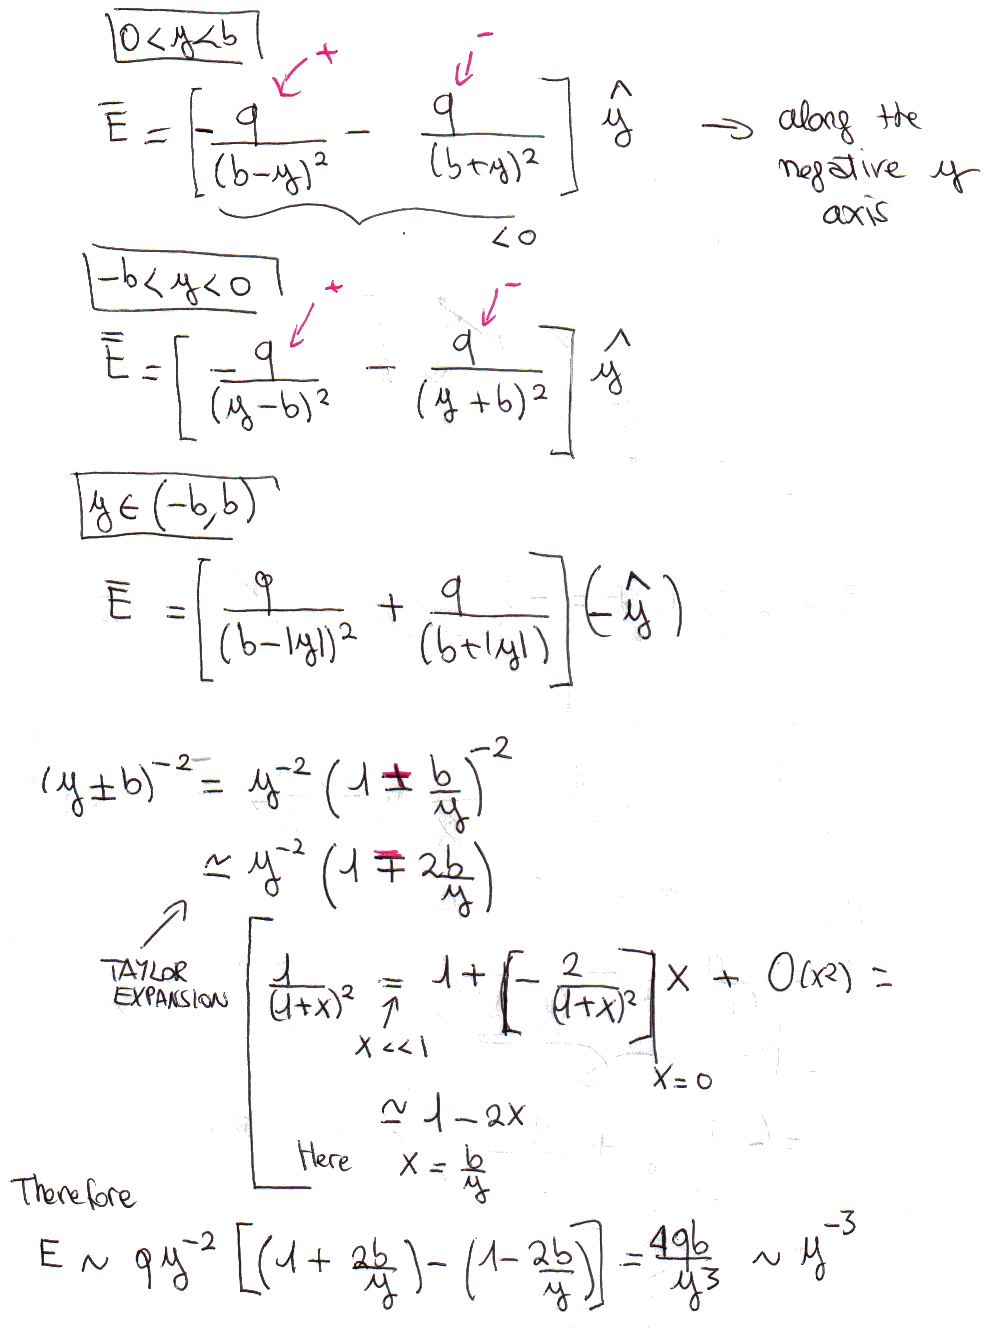 0 < y < b
+ -
E̅ = [ - q/(b-y)² - q/(b+y)² ] ŷ → along the negative y axis
< 0
-b < y < 0
+ -
E̅ = [ - q/(y-b)² - q/(y+b)² ] ŷ
y ∈ (-b, b)
E̅ = [ q/(b-|y|)² + q/(b+|y|) ] (-ŷ)
(y ± b)⁻² = y⁻² (1 ± b/y)⁻²
≃ y⁻² (1 ∓ 2b/y)
TAYLOR EXPANSION
1/(1+x)² = 1 + [ - 2/(1+x)² ] x + O(x²) =
x << 1
x = 0
≃ 1 - 2x
Here x = b/y
Therefore
E ~ q y⁻² [ (1 + 2b/y) - (1 - 2b/y) ] = 4qb/y³ ~ y⁻³